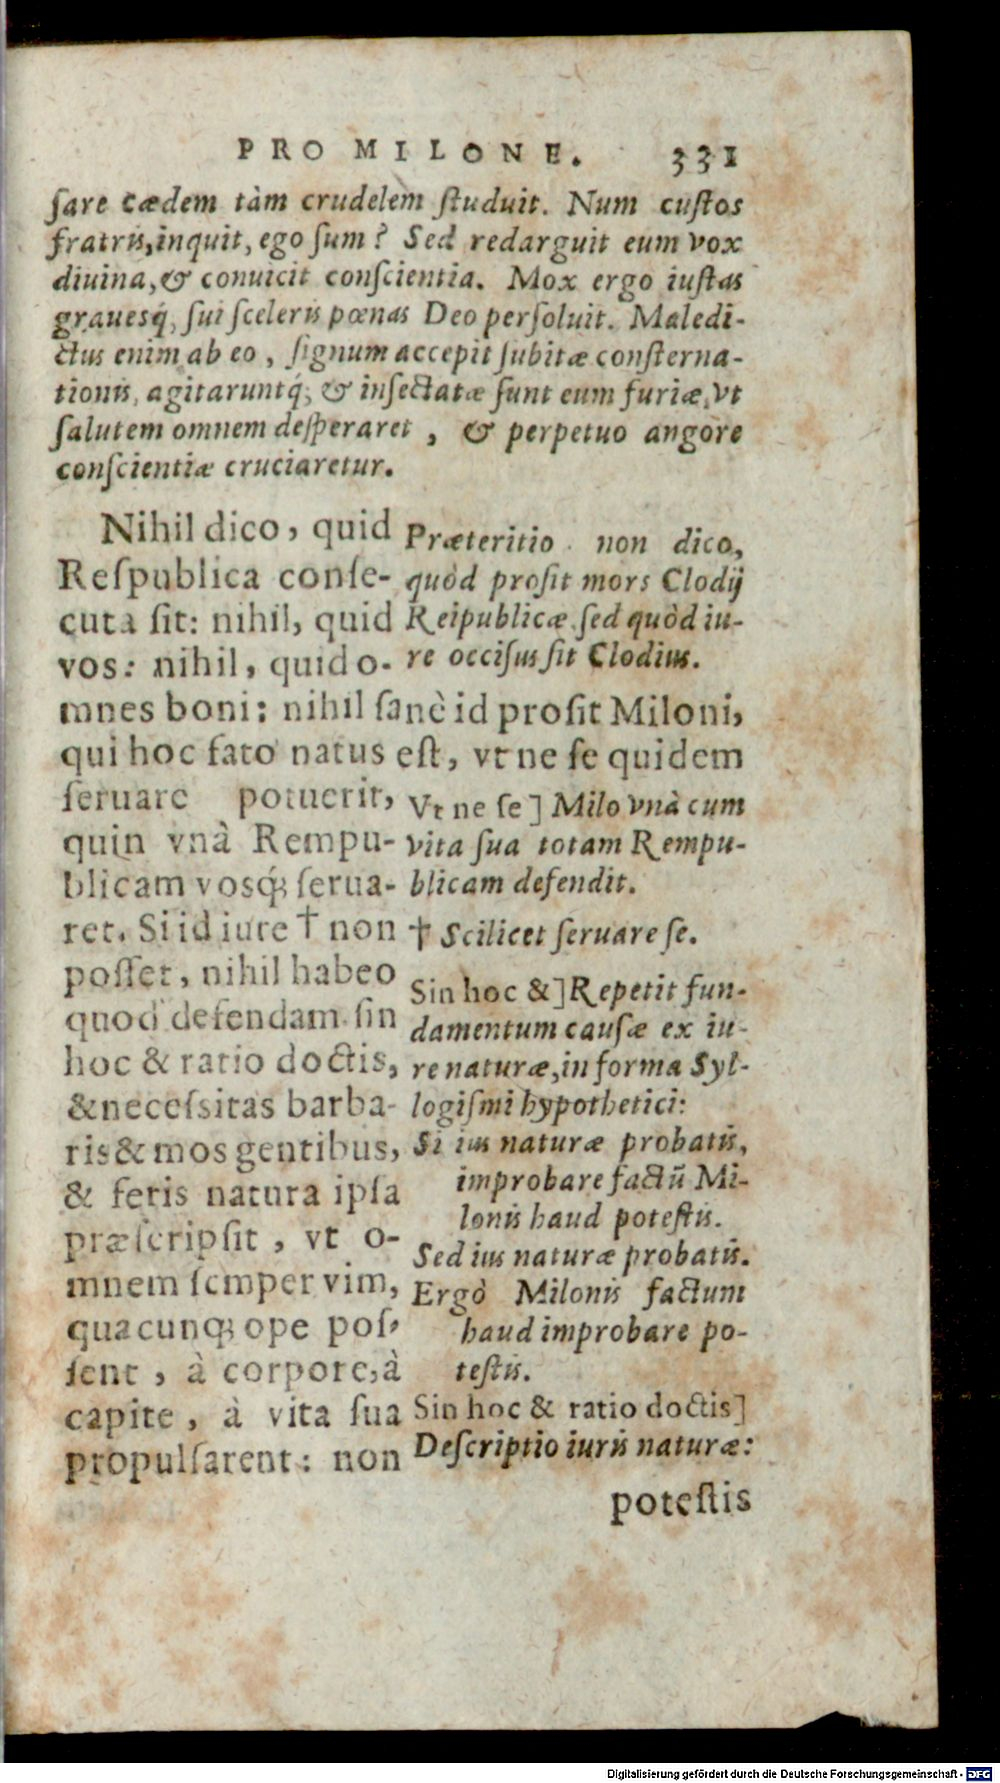 PRO MILONE. 331
ſare cædem tàm crudelem ſtuduit. Num cuſtos
fratris, inquit, ego ſum? Sed redarguit eum vox
diuina, & conuicit conſcientia. Mox ergo iuſtas
grauesq́; ſui ſceleris pœnas Deo perſoluit. Maledi-
ctus enim ab eo, ſignum accepit ſubitæ conſterna-
tionis, agitaruntq́; & inſectatæ ſunt eum furiæ, vt
ſalutem omnem deſperaret, & perpetuo angore
conſcientiæ cruciaretur.
Nihil dico, quid
Reſpublica conſe-
cuta ſit: nihil, quid
vos: nihil, quid o-
mnes boni: nihil ſanè id profit Miloni,
qui hoc fato natus eſt, vt ne ſe quidem
ſeruare potuerit,
quin vnà Rempu-
blicam vosq́; ſerua-
ret. Si id iure † non
poſſet, nihil habeo
quod defendam. ſin
hoc & ratio doctis,
& neceſsitas barba-
ris & mos gentibus,
& feris natura ipſa
præſcripſit, vt o-
mnem ſemper vim,
quacunq; ope poſ-
ſent, à corpore, à
capite, à vita ſua
propulſarent: non
Præteritio. non dico,
quòd proſit mors Clodij
Reipublicæ, ſed quòd iu-
re occiſus ſit Clodius.
Vt ne ſe] Milo vnà cum
vita ſua totam Rempu-
blicam defendit.
† Scilicet ſeruare ſe.
Sin hoc &] Repetit fun-
damentum cauſæ ex iu-
re naturæ, in forma Syl-
logiſmi hypothetici:
Si ius naturæ probatis,
improbare factū Mi-
lonis haud poteſtis.
Sed ius naturæ probatis.
Ergò Milonis factum
haud improbare po-
teſtis.
Sin hoc & ratio doctis]
Deſcriptio iuris naturæ:
poteſtis
Digitalisierung gefördert durch die Deutsche Forschungsgemeinschaft - DFG